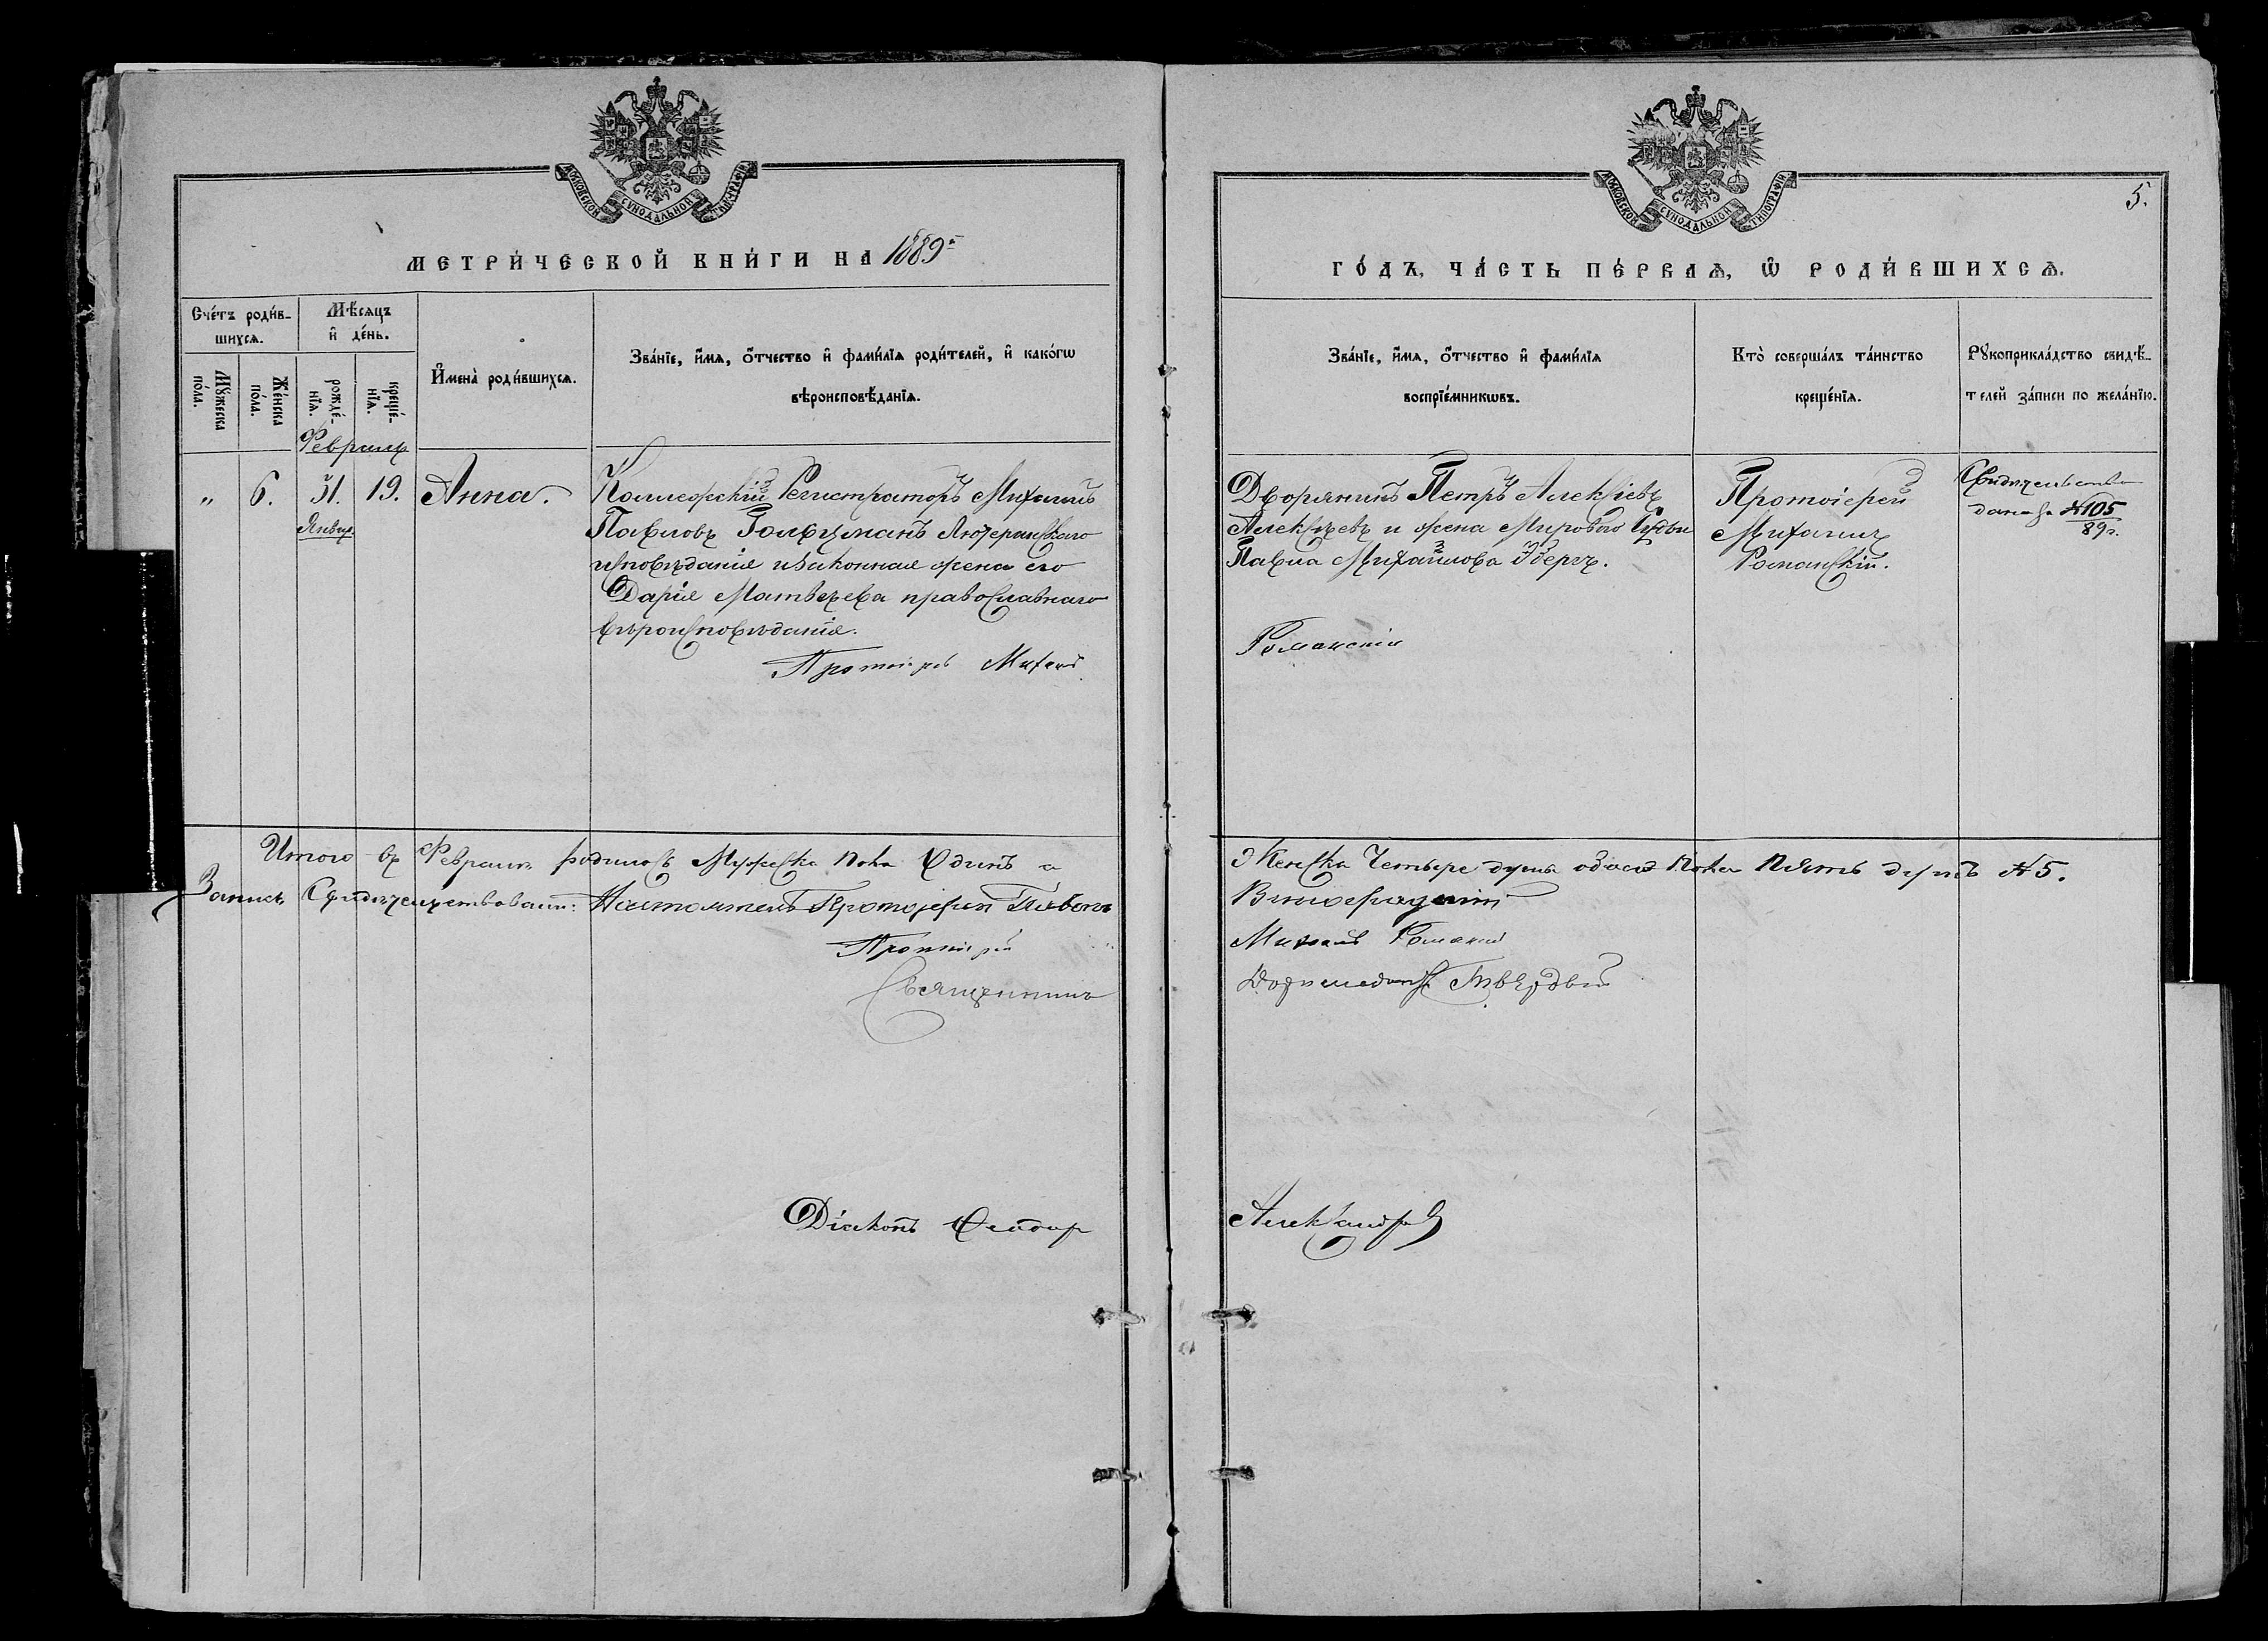 МОСКОВСКОЙ СѴНОДАЛЬНОЙ ТИПОГРАФІИ
МЕТРИ́ЧЕСКОЙ КНИ́ГИ НА 1889й
Сче́тъ роди́в-
шихсѧ.
Мꙋ́жеска
по́ла.
Же́нска
по́ла.
Мѣ́сѧцъ
и҆ де́нь.
рожде́-
нїѧ.
креще́-
нїѧ.
И҆мена̀ роди́вшихсѧ.
Зва́нїе, и҆́мѧ, о҆́тчество и҆ фами́лїѧ роди́телей, и҆ како́гѡ
вѣроисповѣ́данїѧ.
Февраль
„ 6. 31. 19. Анна.
Январ.
Коллежскій Регистраторъ Михаилъ
Павловъ Гольцманъ Лютеранскаго
исповѣданія и законная жена его
Дарія Матвѣева православнаго
вѣроисповѣданія.
Протоіерей Михаилъ
Итого въ Февралѣ родилось Мужеска пола Одинъ а
Запись Свидѣтельствовали: Настоятель Протоіерей Павелъ
Протоіерей
Священникъ
Діаконъ Ѳеодоръ
МОСКОВСКОЙ СѴНОДАЛЬНОЙ ТИПОГРАФІИ
5.
ГО́ДЪ, ЧА́СТЬ ПЕ́РВАѦ, Ѡ҆ РОДИ́ВШИХСѦ.
Зва́нїе, и҆́мѧ, о҆́тчество и҆ фами́лїѧ
воспрїе́мникѡвъ.
Кто̀ соверша́лъ та́инство
креще́нїѧ.
Рꙋкоприкла́дство свидѣ́-
телей за́писи по жела́нїю.
Дворянинъ Петръ Алексіевъ
Алексѣевъ и жена Мирового Судьи
Павла Михайлова Эберга.
Романскій
Протоіерей
Михаилъ
Романскій.
Свидѣтельство
дано за №105
89г.
Женска Четыре души обоего пола пять душъ №5.
Виноградовъ
Михаилъ Романскій
Твердый
Александровъ